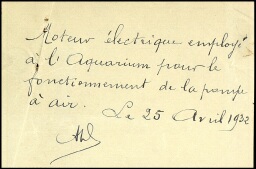 Moteur électrique employé
à l'Aquarium pour le
fonctionnement de la pompe
à air. Le 25 Avril 1932